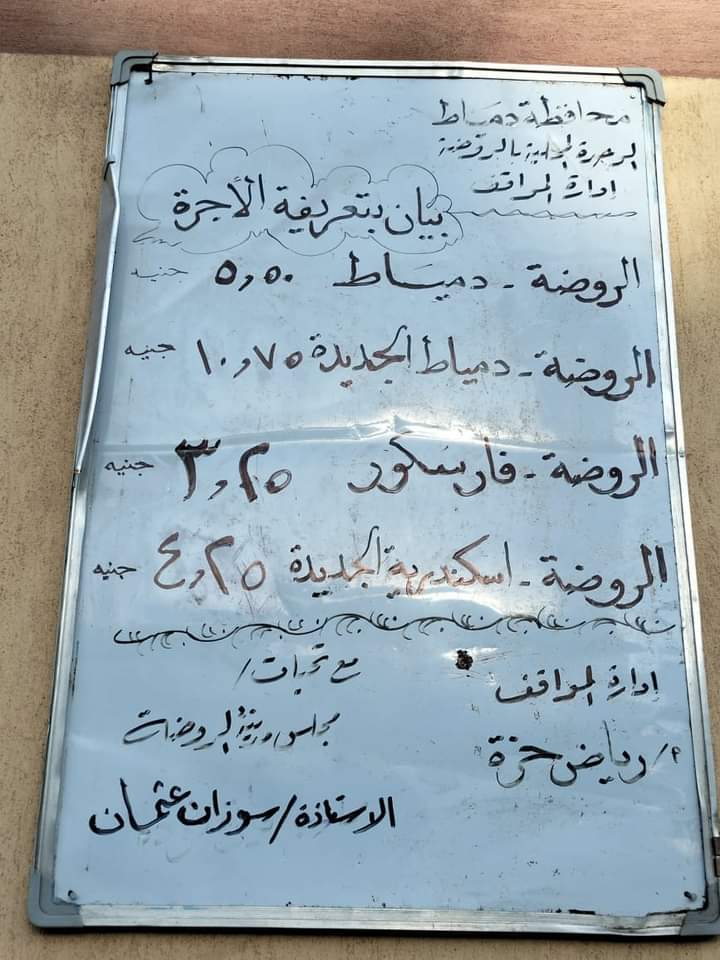 محافظة دمياط
الوحدة المحلية بالروضة
إدارة المراقف
بيان بتعريفة الأجرة
الروضة - دمياط ٥,٥٠ جنيه
الروضة - دمياط الجديدة ١٠,٧٥ جنيه
الروضة - فارسكور ٣,٢٥ جنيه
الروضة - اسكندرية الجديدة ٤,٢٥ جنيه
إدارة المراقف
م/ رياض حمزة
مع تحيات/
مجلس مدينة الروضة
الاستاذة/ سوزان عثمان